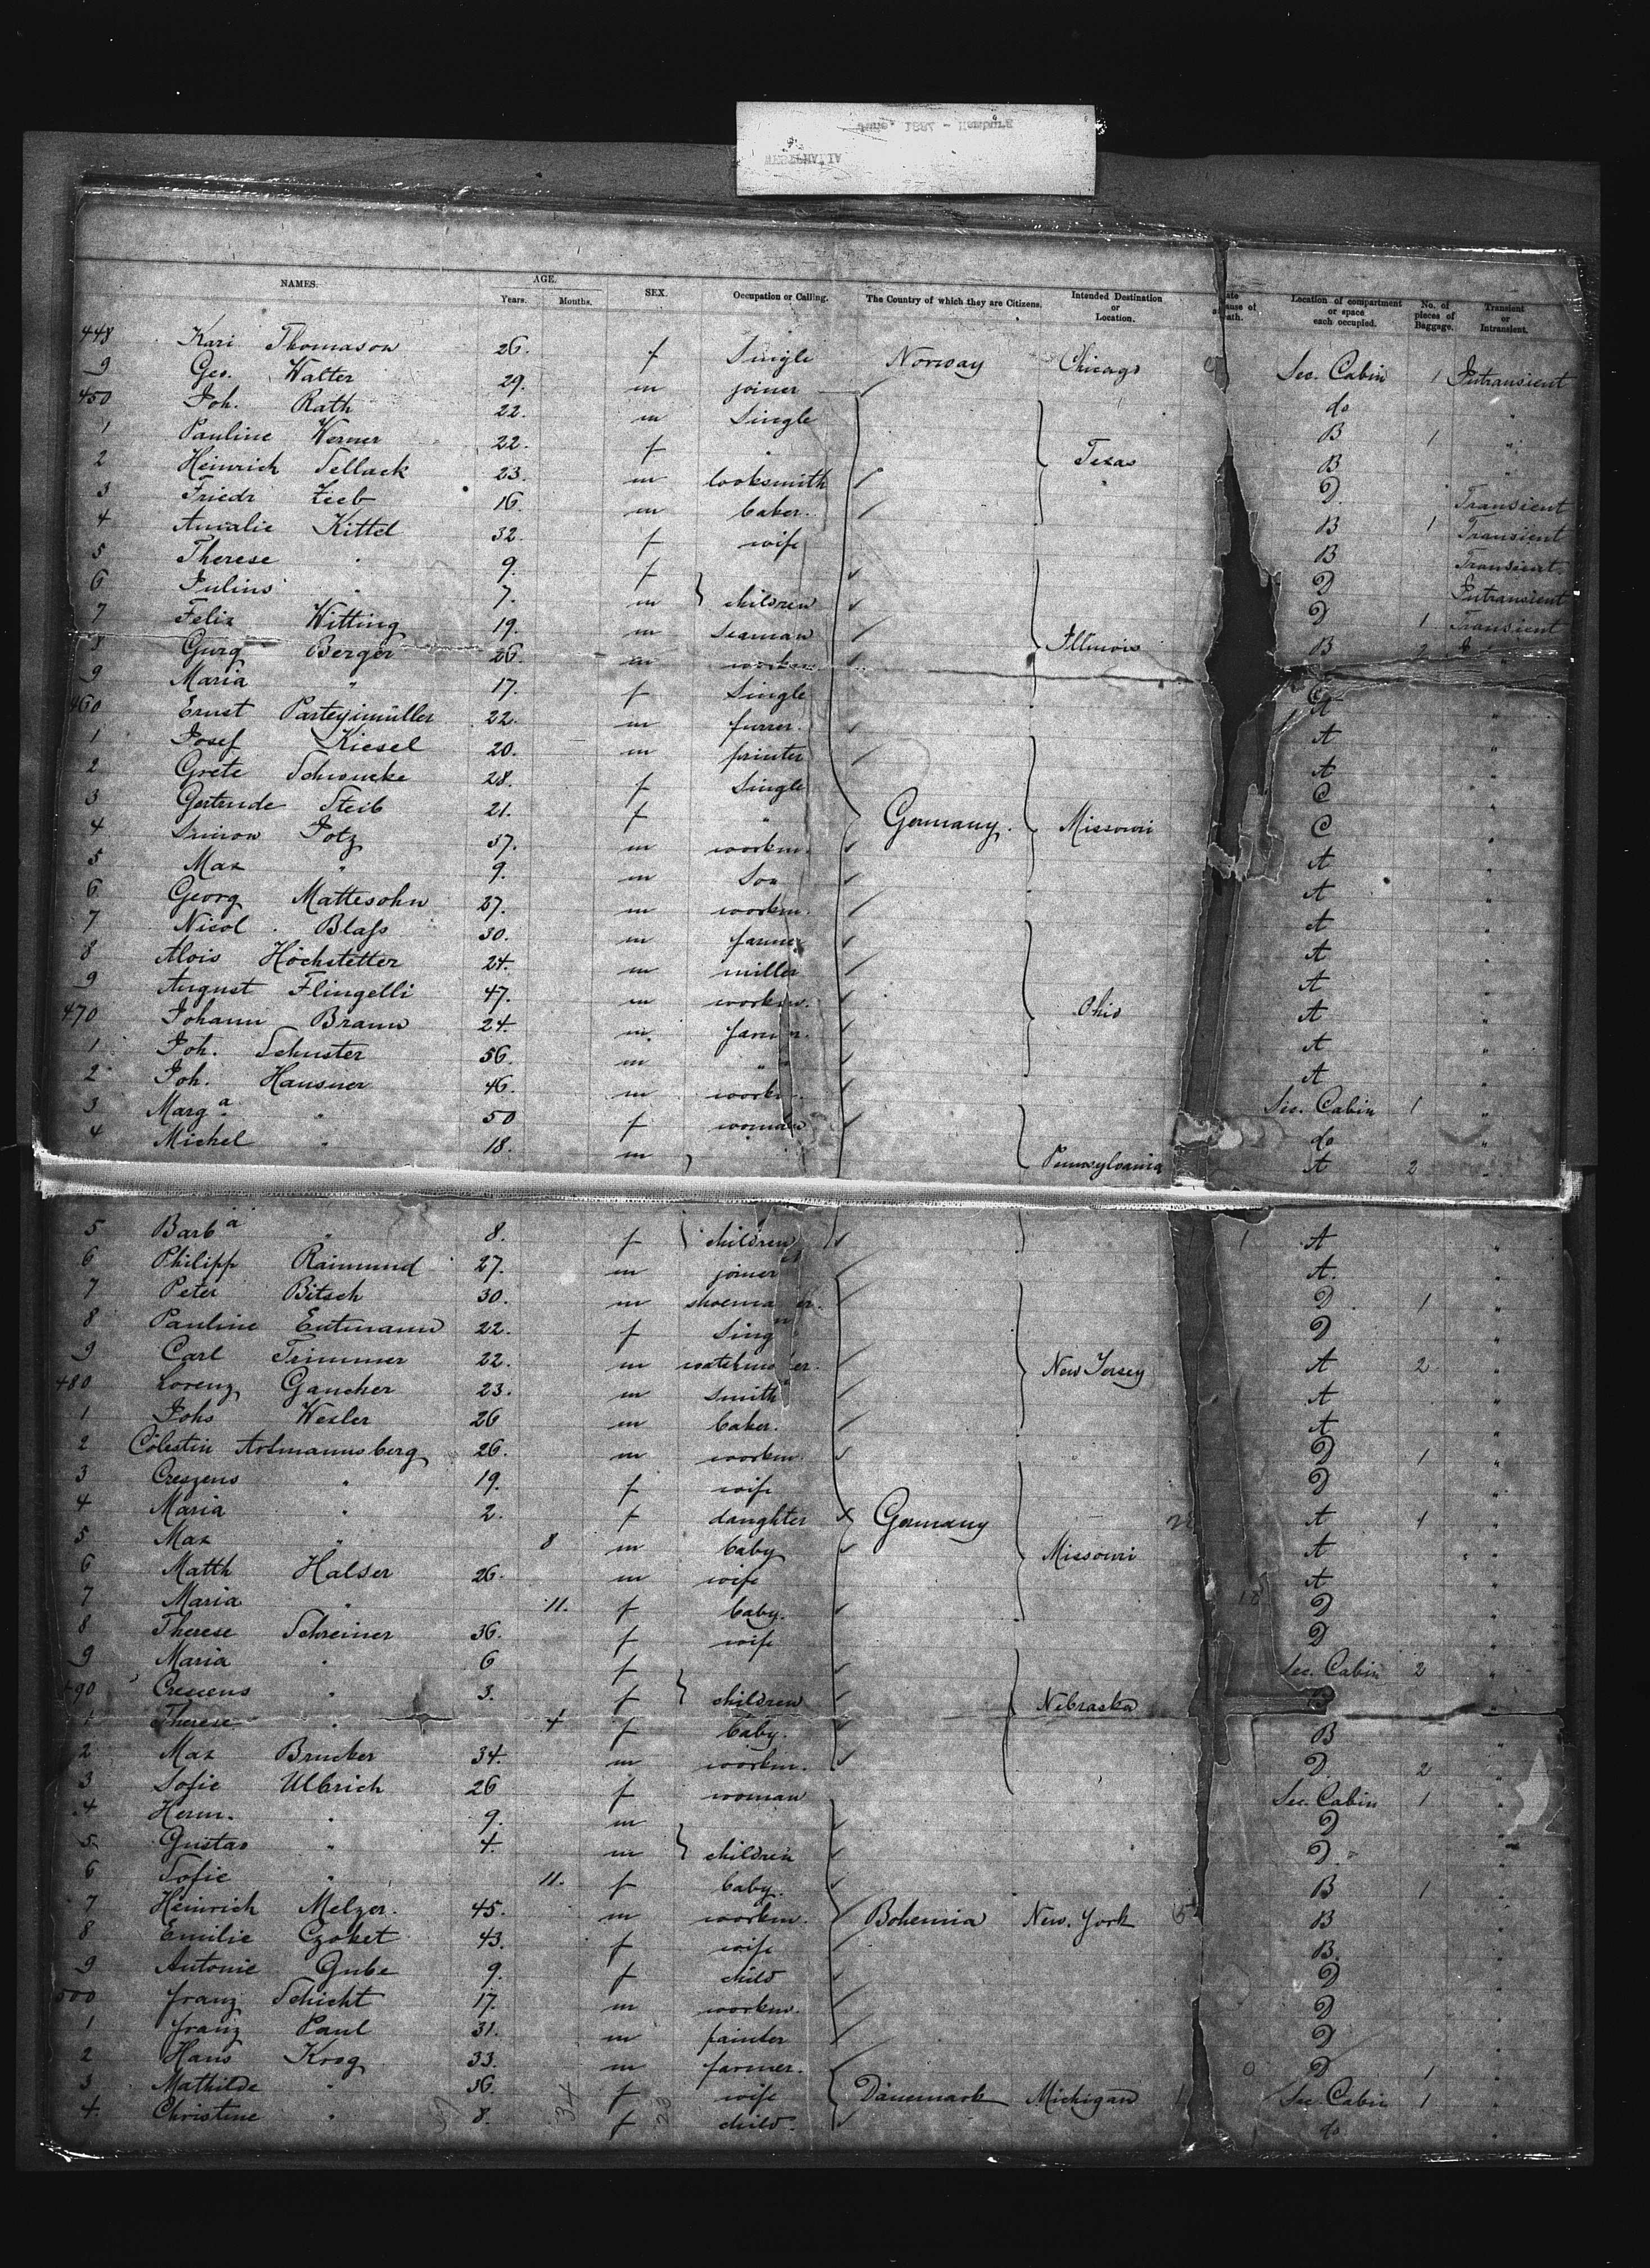 NAMES. AGE. SEX. Occupation or Calling. The Country of which they are Citizens. Intended Destination or Location. Location of compartment or space each occupied. No. of pieces of Baggage. Transient or Intransient.
Years. Months.
448 Kari Thomason 26. f Single Norway Chicago Sec. Cabin 1 Intransient
9 Geo. Walter 29. m joiner do "
450 Joh. Rath 22. m Single B 1 "
1 Pauline Werner 22. f " Texas B "
2 Heinrich Sellack 23. m locksmith D. Transient
3 Friedr Zieb 16. m baker. B 1 Transient
4 Amalie Kittel 32. f wife B Transient
5 Therese " 9. f D Intransient
6 Julius " 7. m } children D 1 Transient
7 Felix Witting 19. m Seaman Illinois B 2
8 Gurg Berger 26. m workm "
9 Maria " 17. f Single A "
460 Ernst Parteyimüller 22. m furrer. A "
1 Josef Kiesel 20. m printer A "
2 Grete Schwencke 28. f Single C "
3 Gertrude Steib 21. f " Germany. Missouri C "
4 Simon Potz 37. m workm. A "
5 Max " 9. m Son A "
6 Georg Mattesohn 27. m workm. A "
7 Nicol. Blass 30. m farmer A "
8 Alois Höchstetter 24. m miller A "
9 August Flingelli 47. m workm. Ohio A "
470 Johann Braun 24. m. farmer. A "
1 Joh. Schuster 56. m " A "
2 Joh. Hausner 46. m workm. Sec. Cabin 1 "
3 Marga " 50 f woman do "
4 Michel " 18. m Pennsylvania A 2 "
5 Barba " 8. f children A "
6 Philipp Raimund 27. m joiner A. "
7 Peter Bitsch 30. m shoemaker. D 1 "
8 Pauline Entmann 22. f Sing D "
9 Carl Trimmer 22. m watchmaker. New Jersey A 2 "
480 Lorenz Gancher 23. m Smith A "
1 Johs Wexler 26 m baker. A "
2 Cölestin Artmannsberg 26. m workm D 1 "
3 Creszens " 19. f wife D "
4 Maria " 2. f daughter Germany A 4 "
5 Max " 8 m baby Missouri A "
6 Matth Halser 26. m wife A "
7 Maria " 11. f baby. D "
8 Therese Schreiner 36. f wife D "
9 Maria " 6 f Sec. Cabin 2 "
490 Crescens " 3. f } children Nebraska "
1 Therese " 4 f baby. B "
2 Max Brucker 34. m workm. D 2 "
3 Sofie Ulbrich 26 f woman Sec. Cabin 1 "
4 Herm. " 9. m D "
5 Gustav " 4. m } children D. "
6 Sofie " 11. f baby. B 1 "
7 Heinrich Melzer. 45. m workm. Bohemia New. York B "
8 Emilie Czoket 43. f wife B. "
9 Antonie Gube 9. f child D "
500 Franz Schicht 17. m workm. D "
1 Franz Paul 31. m painter D "
2 Hans Krog 33. m farmer. D 1 "
3 Mathilde " 36. f wife Dänemark Michigan Sec. Cabin 1 "
4. Christine " 8. f child. do "